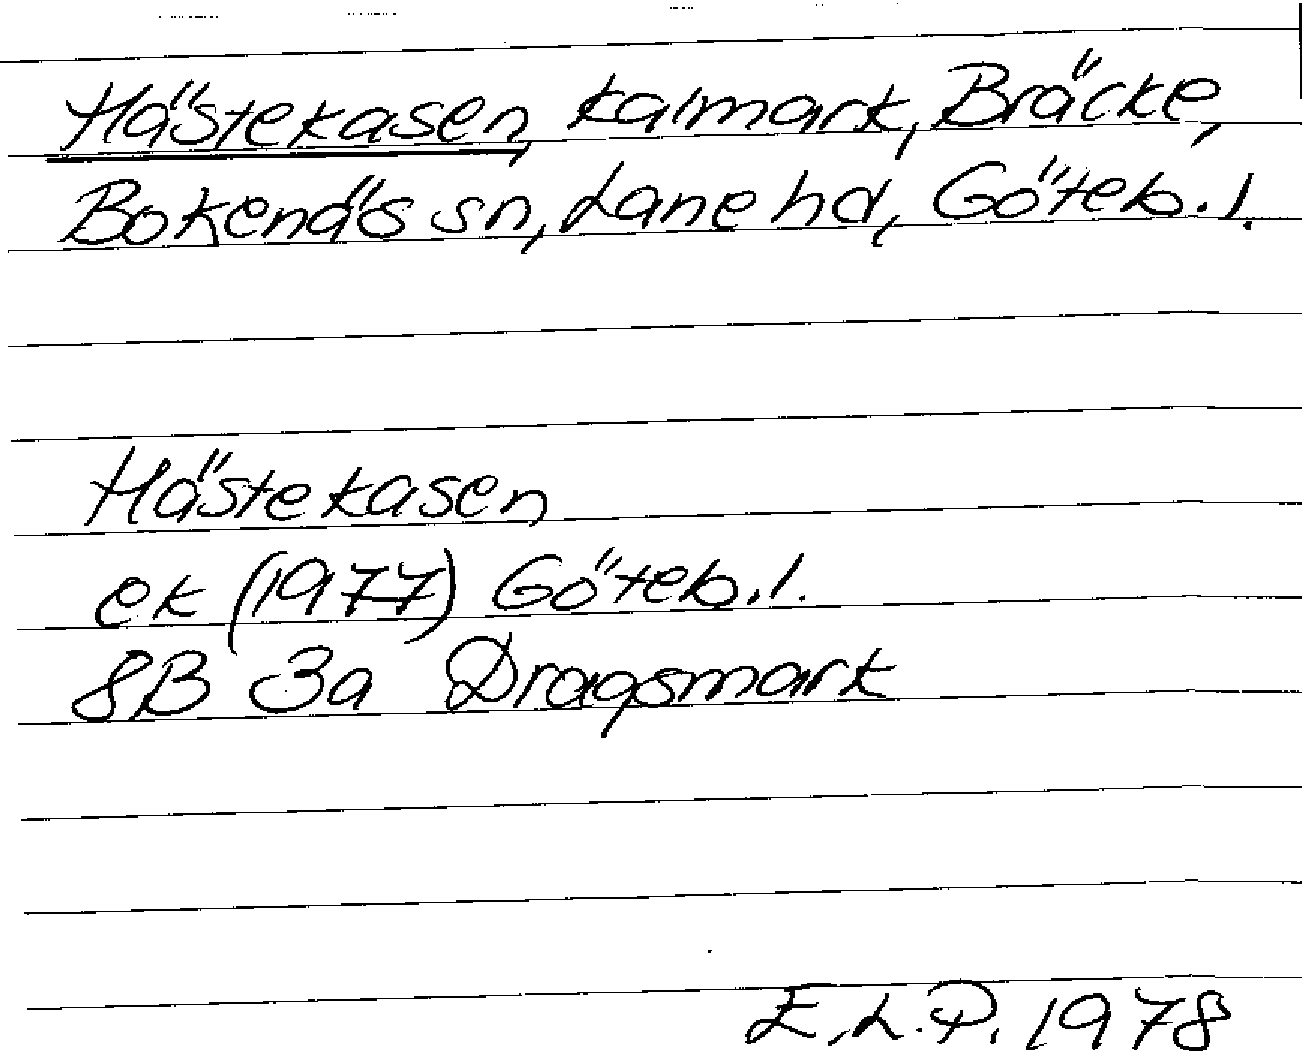 Hästekasen, kalmark, Bräcke,
Bokenäs sn, Lane hd, Göteb. l.
Hästekasen
ek (1977) Göteb. l.
8B 3a Dragsmark
E.L.P. 1978